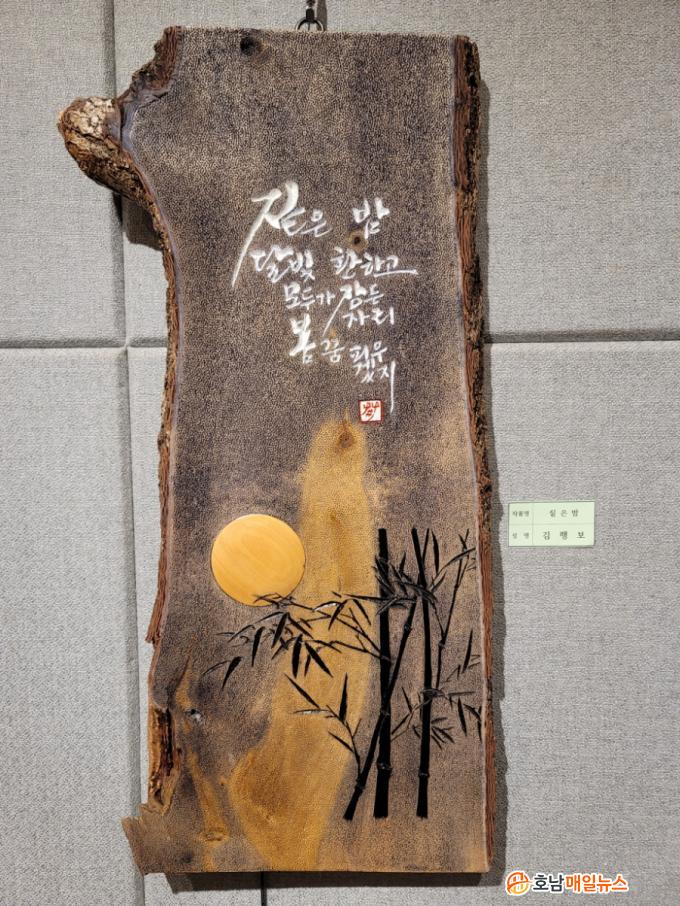 짙은 밤
달빛 환하고
모두가 잠든
자리
봄 꿈 피우
겠지
작품명 짙은밤
성 명 김행보
호남매일뉴스